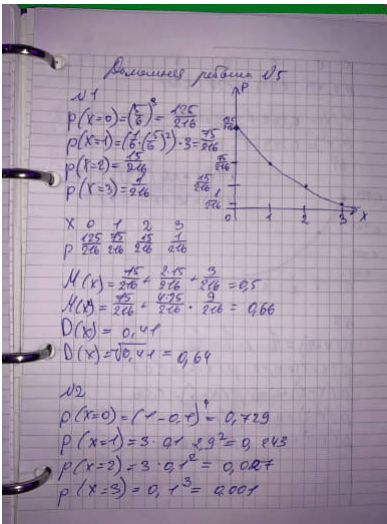 Домашняя работа №5
№1
p(x=0)=(5/6)³ = 125/216
p(x=1)=(1/6·(5/6)²)·3=75/216
p(x=2)=15/216
p(x=3)=1/216
P
125/216
75/216
15/216
1/216
0 1 2 3 X
X 0 1 2 3
P 125/216 75/216 15/216 1/216
M(x)=75/216+2·15/216+3/216=0,5
=0,66
D(x)=0,41
D(x)=√0,41=0,64
№2
p(x=0)=(1-0,1) = 0,729
p(x=1)=3·0,1 =0,243
p(x=2)=3·0,1²=0,027
p(x=3)=0,1³=0,001